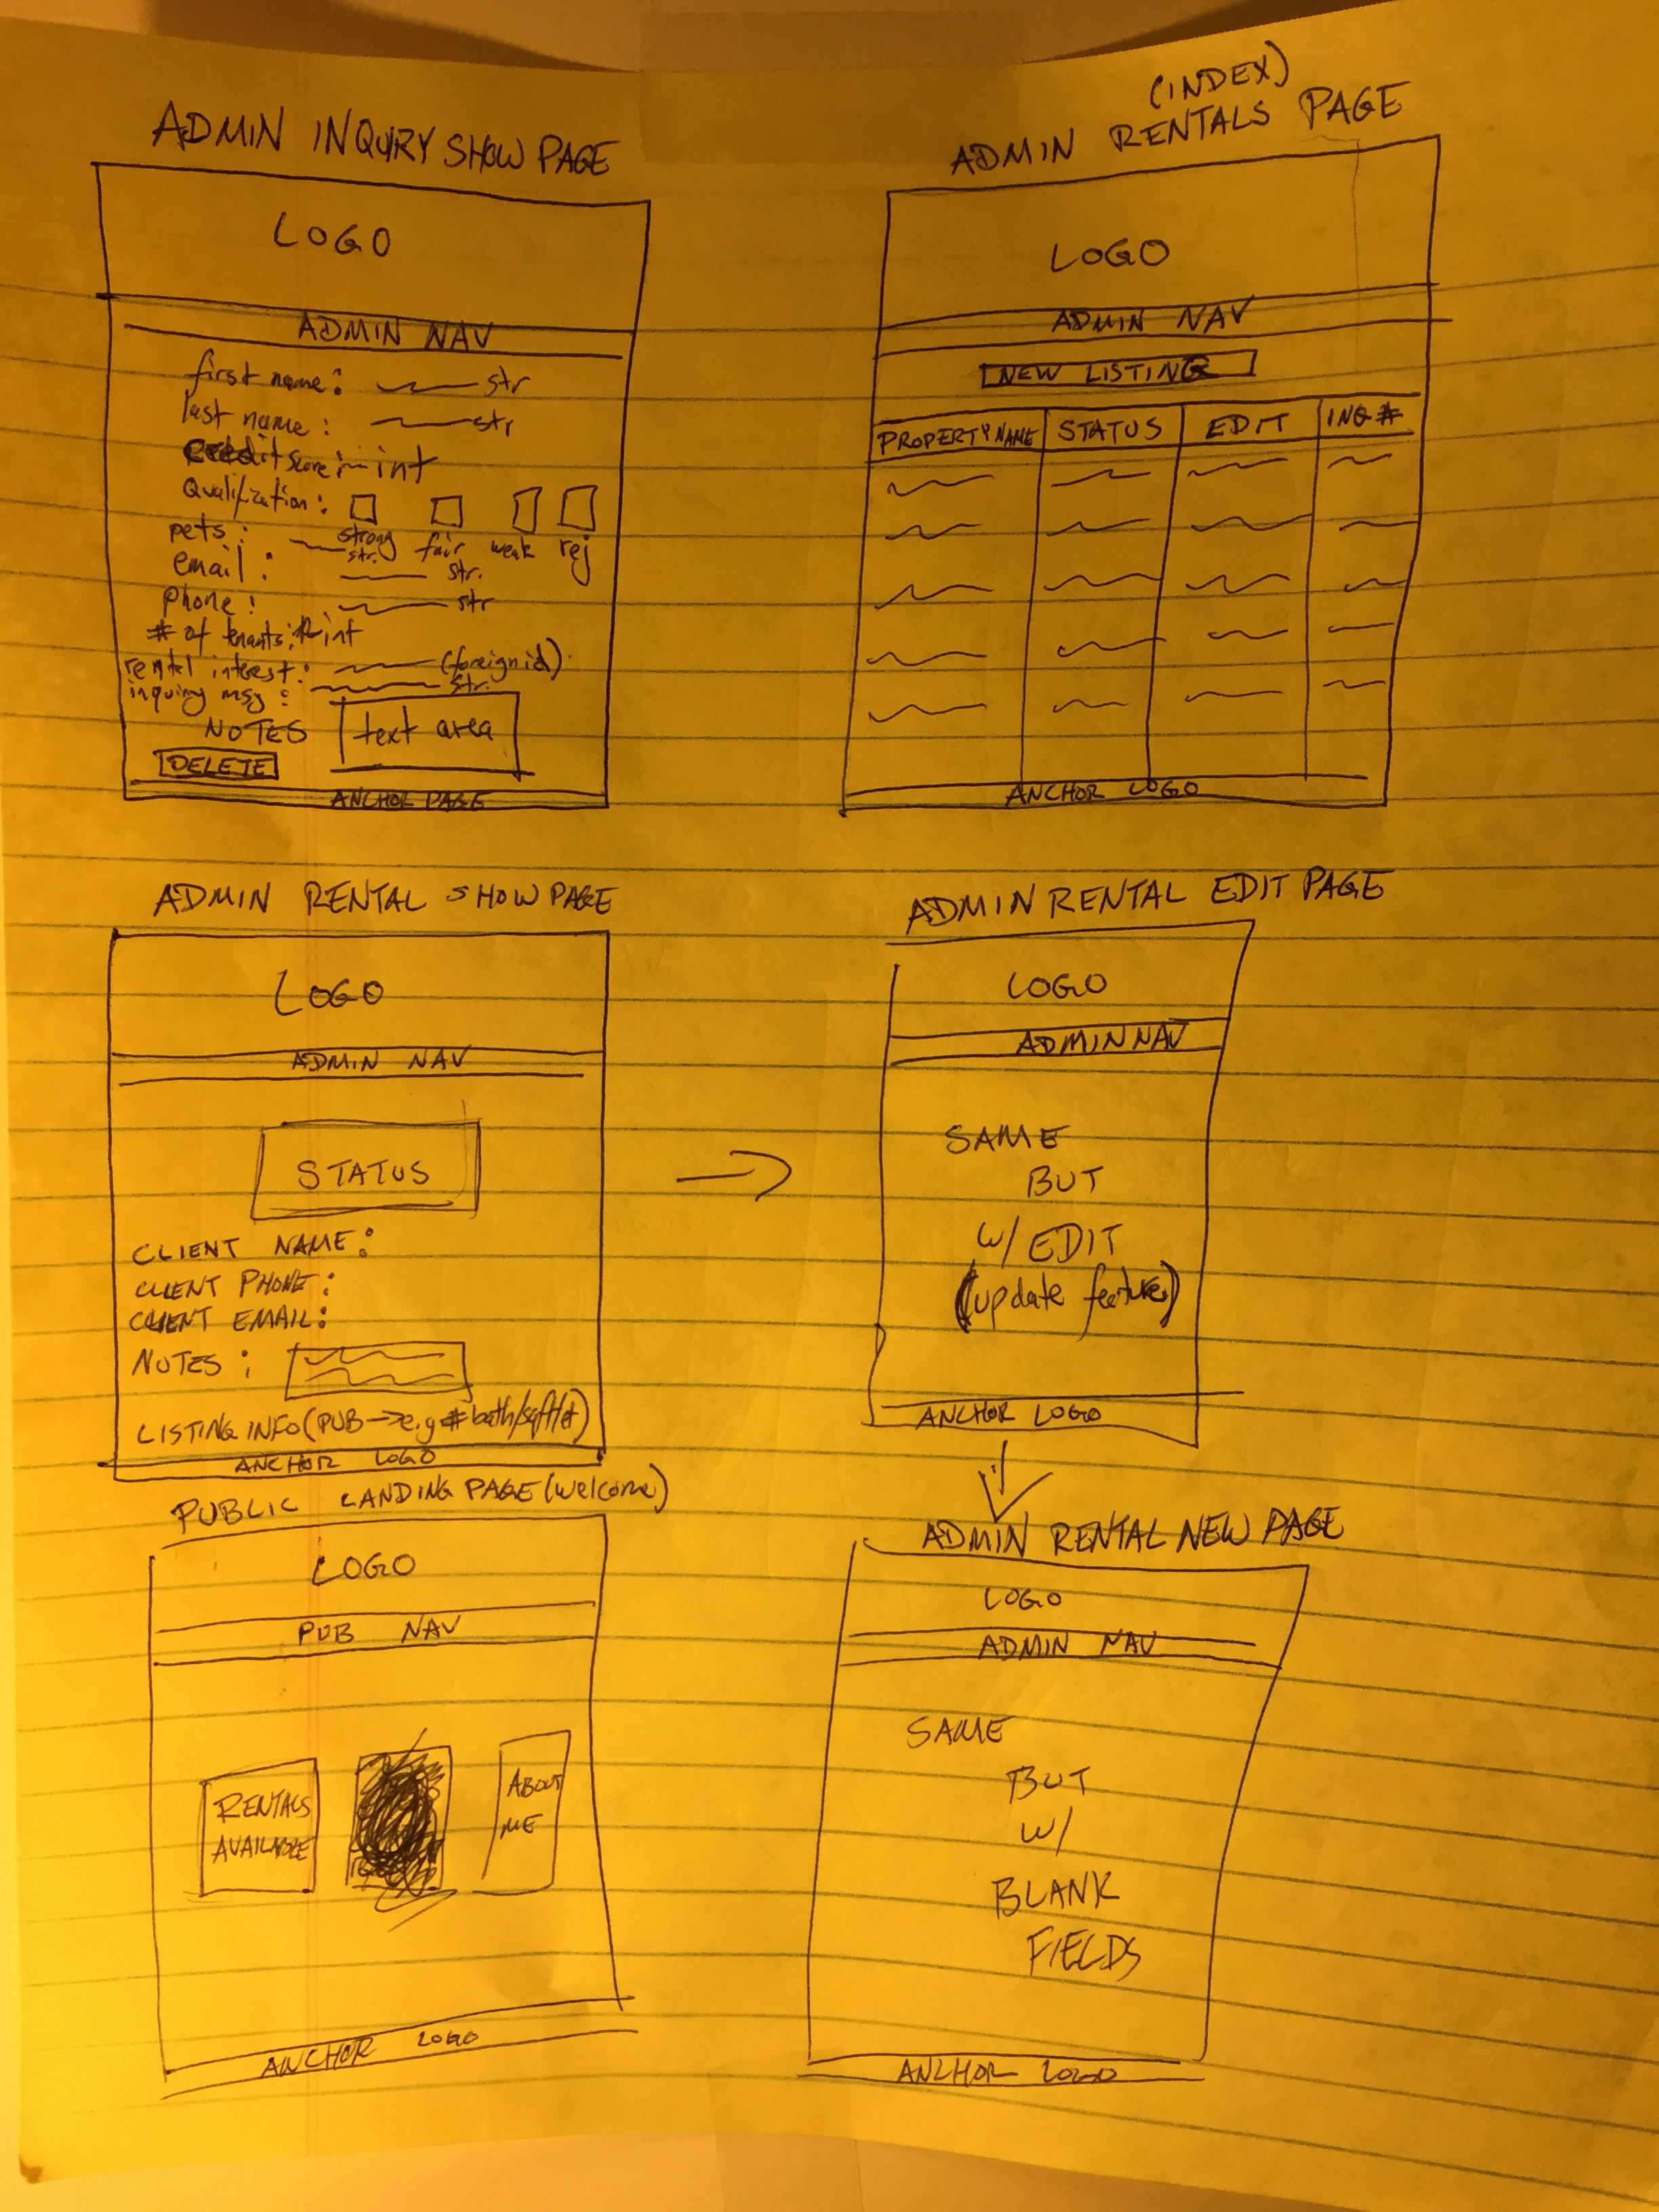 ADMIN INQUIRY SHOW PAGE
LOGO
ADMIN NAV
first name: str
last name: str
credit score: int
Qualification:
strong fair weak rej
pets: str.
email: str.
phone: str
# of tenants: # int
rental interest: (foreign id)
inquiry msg: str.
NOTES text area
DELETE
ANCHOR PAGE
(INDEX)
ADMIN RENTALS PAGE
LOGO
ADMIN NAV
NEW LISTING
PROPERTY NAME STATUS EDIT INQ #
ANCHOR LOGO
ADMIN RENTAL SHOW PAGE
LOGO
ADMIN NAV
STATUS
CLIENT NAME:
CLIENT PHONE:
CLIENT EMAIL:
NOTES:
LISTING INFO (PUB → e.g # bath/sqft/
ANCHOR LOGO
ADMIN RENTAL EDIT PAGE
LOGO
ADMIN NAV
SAME
BUT
W/ EDIT
(update feature)
ANCHOR LOGO
PUBLIC LANDING PAGE (welcome)
LOGO
PUB NAV
RENTALS
AVAILABLE
ABOUT
ME
ANCHOR LOGO
ADMIN RENTAL NEW PAGE
LOGO
ADMIN NAV
SAME
BUT
W/
BLANK
FIELDS
ANCHOR LOGO